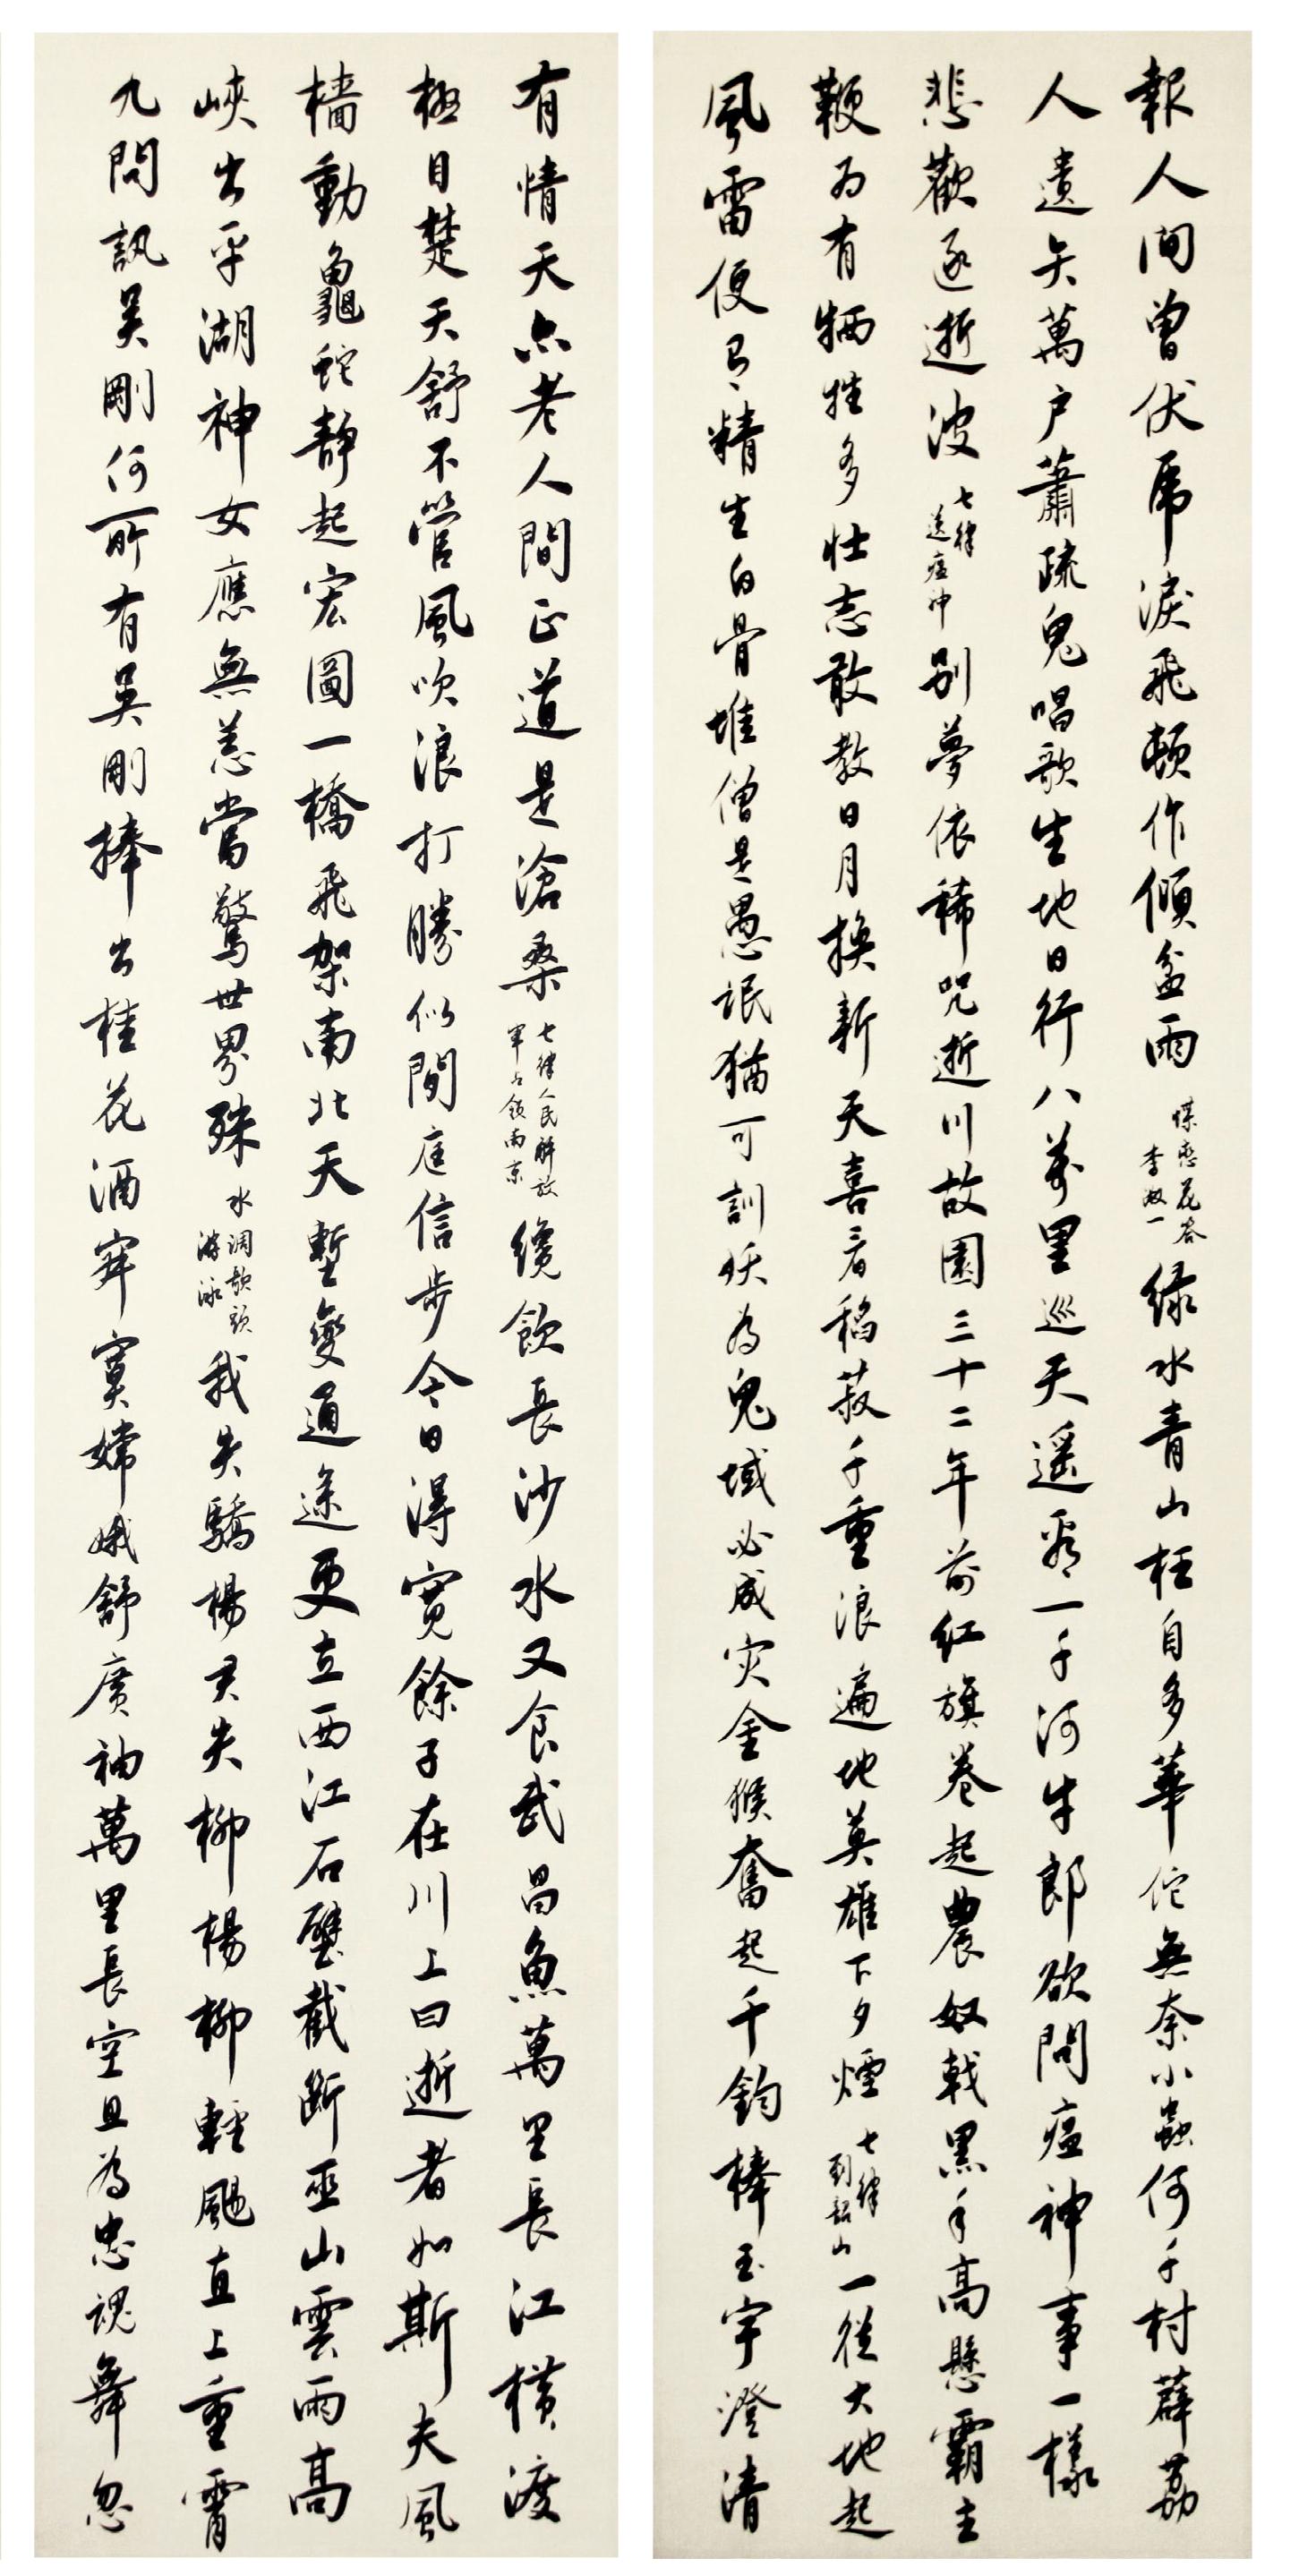 有情天亦老人間正道是滄桑
七律人民解放
軍占領南京
纔飲長沙水又食武昌魚萬里長江橫渡
極目楚天舒不管風吹浪打勝似閒庭信步今日得寬餘子在川上曰逝者如斯夫風
檣動龜蛇靜起宏圖一橋飛架南北天塹變通途更立西江石壁截斷巫山雲雨高
峽出平湖神女應無恙當驚世界殊
水調歌頭
游泳
我失驕楊君失柳楊柳輕颺直上重霄
九問訊吳剛何所有吳剛捧出桂花酒寂寞嫦娥舒廣袖萬里長空且為忠魂舞忽
報人間曾伏虎淚飛頓作傾盆雨
蝶戀花答
李淑一
綠水青山枉自多華佗無奈小蟲何千村薜荔
人遺矢萬戶蕭疏鬼唱歌坐地日行八萬里巡天遙看一千河牛郎欲問瘟神事一樣
悲歡逐逝波
七律
送瘟神
別夢依稀咒逝川故園三十二年前紅旗卷起農奴戟黑手高懸霸主
鞭為有犧牲多壯志敢教日月換新天喜看稻菽千重浪遍地英雄下夕煙
七律
到韶山
一從大地起
風雷便有精生白骨堆僧是愚氓猶可訓妖為鬼蜮必成災金猴奮起千鈞棒玉宇澄清